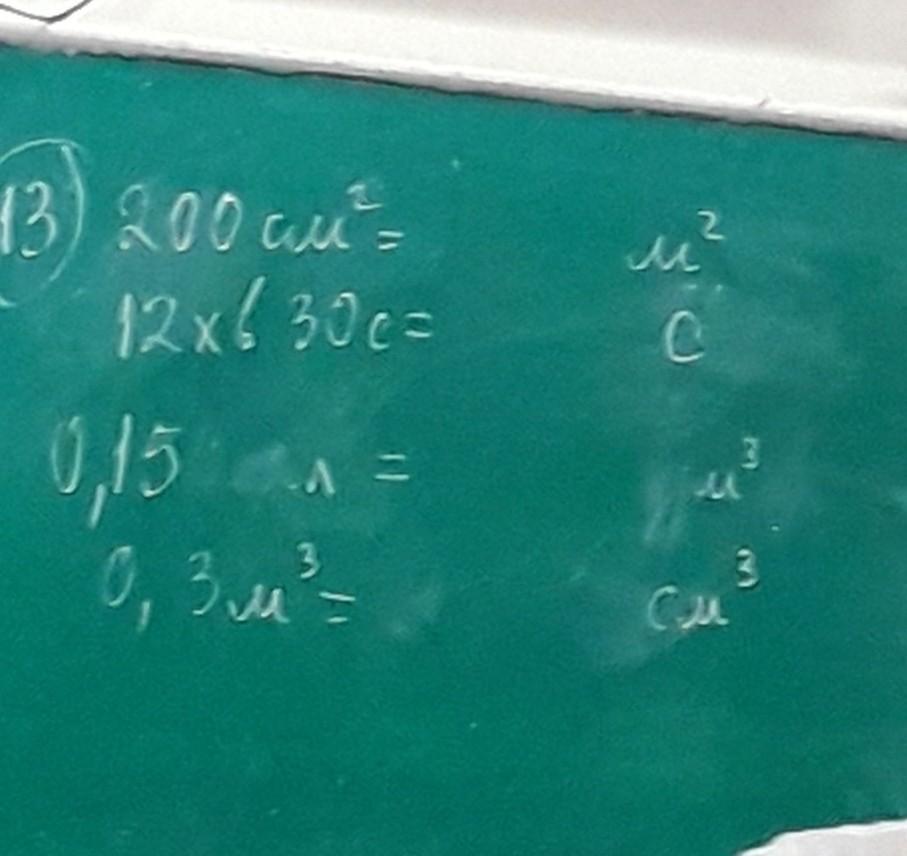 13) 200 см² = м²
12 хв 30 с = с
0,15 л = м³
0,3 м³ = см³